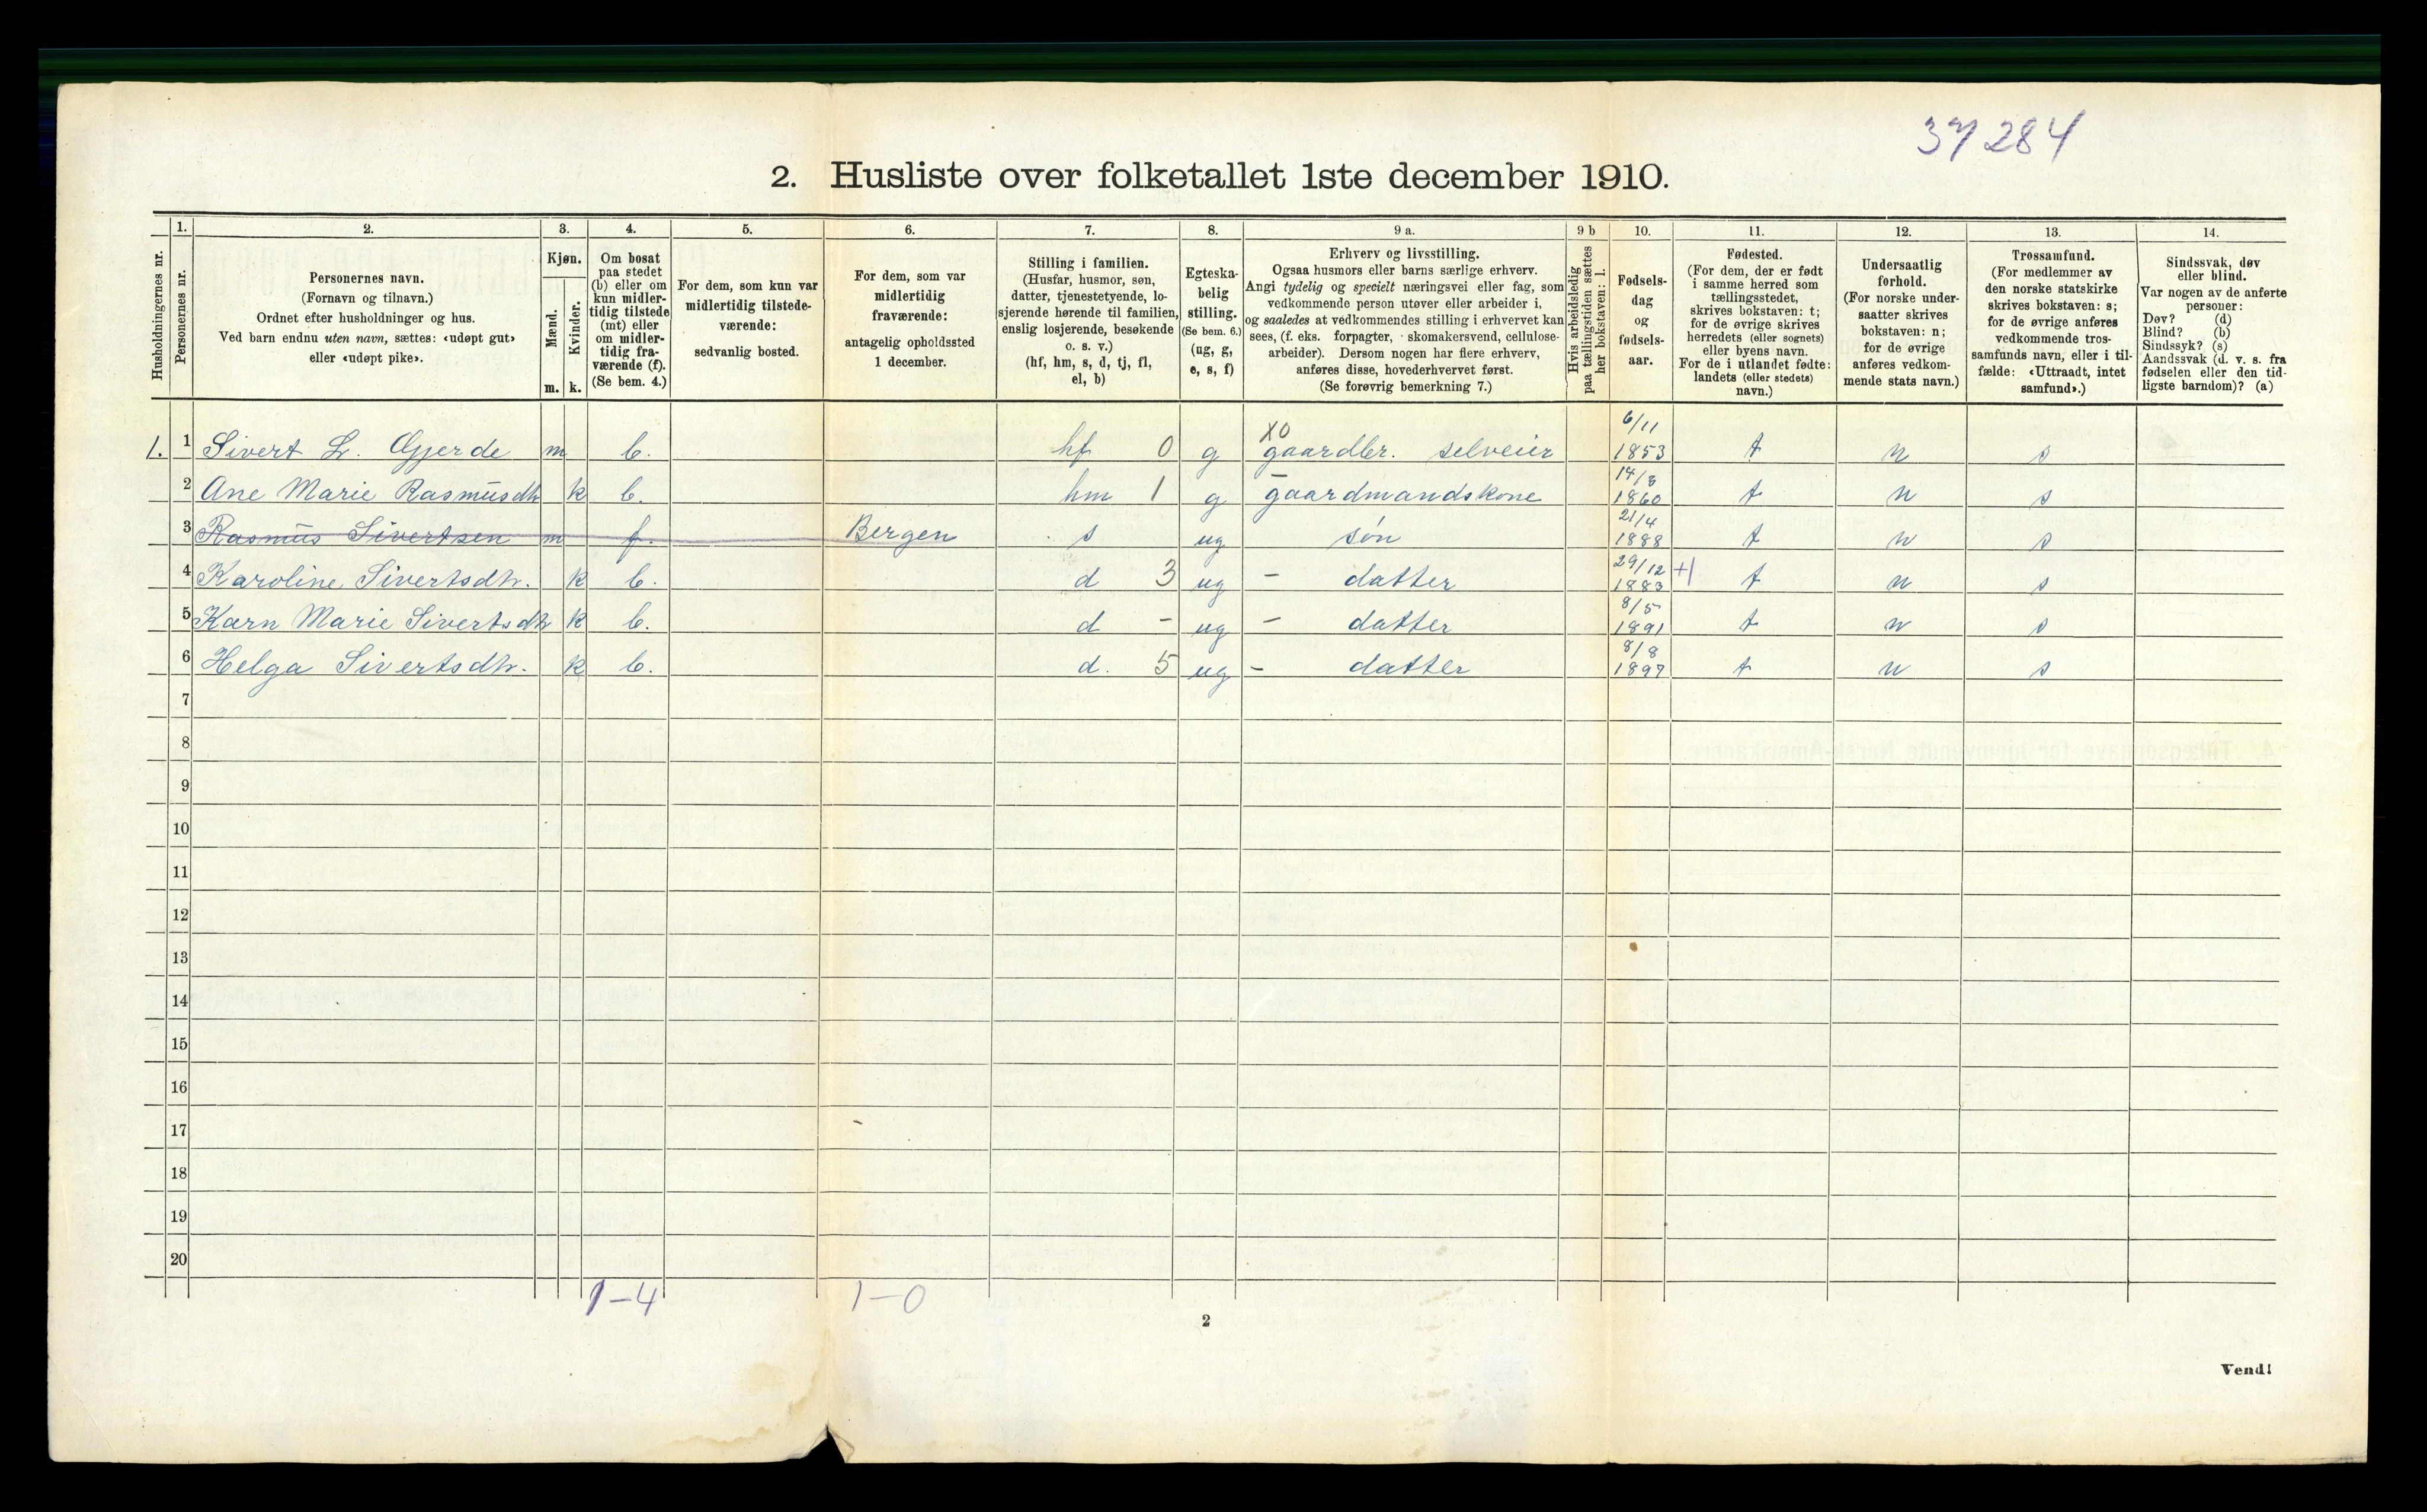 37 284
2. Husliste over folketallet 1ste december 1910.
Husholdningernes nr.
1.
Personernes nr.
2.
Personernes navn.
(Fornavn og tilnavn.)
Ordnet efter husholdninger og hus.
Ved barn endnu uten navn, sættes: «udøpt gut»
eller «udøpt pike».
3.
Kjøn.
Mænd.
Kvinder.
m. k.
4.
Om bosat
paa stedet
(b) eller om
kun midler-
tidig tilstede
(mt) eller
om midler-
tidig fra-
værende (f).
(Se bem. 4.)
5.
For dem, som kun var
midlertidig tilstede-
værende:
sedvanlig bosted.
6.
For dem, som var
midlertidig
fraværende:
antagelig opholdssted
1 december.
7.
Stilling i familien.
(Husfar, husmor, søn,
datter, tjenestetyende, lo-
sjerende hørende til familien,
enslig losjerende, besøkende
o. s. v.)
(hf, hm, s, d, tj, fl,
el, b)
8.
Egteska-
belig
stilling.
(Se bem. 6.)
(ug, g,
e, s, f)
9 a.
Erhverv og livsstilling.
Ogsaa husmors eller barns særlige erhverv.
Angi tydelig og specielt næringsvei eller fag, som
vedkommende person utøver eller arbeider i,
og saaledes at vedkommendes stilling i erhvervet kan
sees, (f. eks. forpagter, skomakersvend, cellulose-
arbeider). Dersom nogen har flere erhverv,
anføres disse, hovederhvervet først.
(Se forøvrig bemerkning 7.)
9 b
Hvis arbeidsledig
paa tællingstiden sættes
her bokstaven: l.
10.
Fødsels-
dag
og
fødsels-
aar.
11.
Fødested.
(For dem, der er født
i samme herred som
tællingsstedet,
skrives bokstaven: t;
for de øvrige skrives
herredets (eller sognets)
eller byens navn.
For de i utlandet fødte:
landets (eller stedets)
navn.)
12.
Undersaatlig
forhold.
(For norske under-
saatter skrives
bokstaven: n;
for de øvrige
anføres vedkom-
mende stats navn.)
13.
Trossamfund.
(For medlemmer av
den norske statskirke
skrives bokstaven: s;
for de øvrige anføres
vedkommende tros-
samfunds navn, eller i til-
fælde: «Uttraadt, intet
samfund».)
14.
Sindssvak, døv
eller blind.
Var nogen av de anførte
personer:
Døv? (d)
Blind? (b)
Sindssyk? (s)
Aandssvak (d. v. s. fra
fødselen eller den tid-
ligste barndom)? (a)
1. 1 Sivert L. Gjerde m b. hf 0 g X0 gaardbr. selveier 6/11 1853 t n s
2 Ane Marie Rasmusdtr k b. hm 1 g gaardmandskone 14/8 1860 t n s
3 Rasmus Sivertsen m f. Bergen s ug søn 21/4 1888 t n s
4 Karoline Sivertsdtr. k b. d 3 ug – datter 29/12 1883 +1 t n s
5 Karn Marie Sivertsdtr k b. d – ug – datter 8/5 1891 t n s
6 Helga Sivertsdtr. k b. d. 5 ug – datter 8/8 1897 t n s
7
8
9
10
11
12
13
14
15
16
17
18
19
20
1–4 1–0
2
Vend!